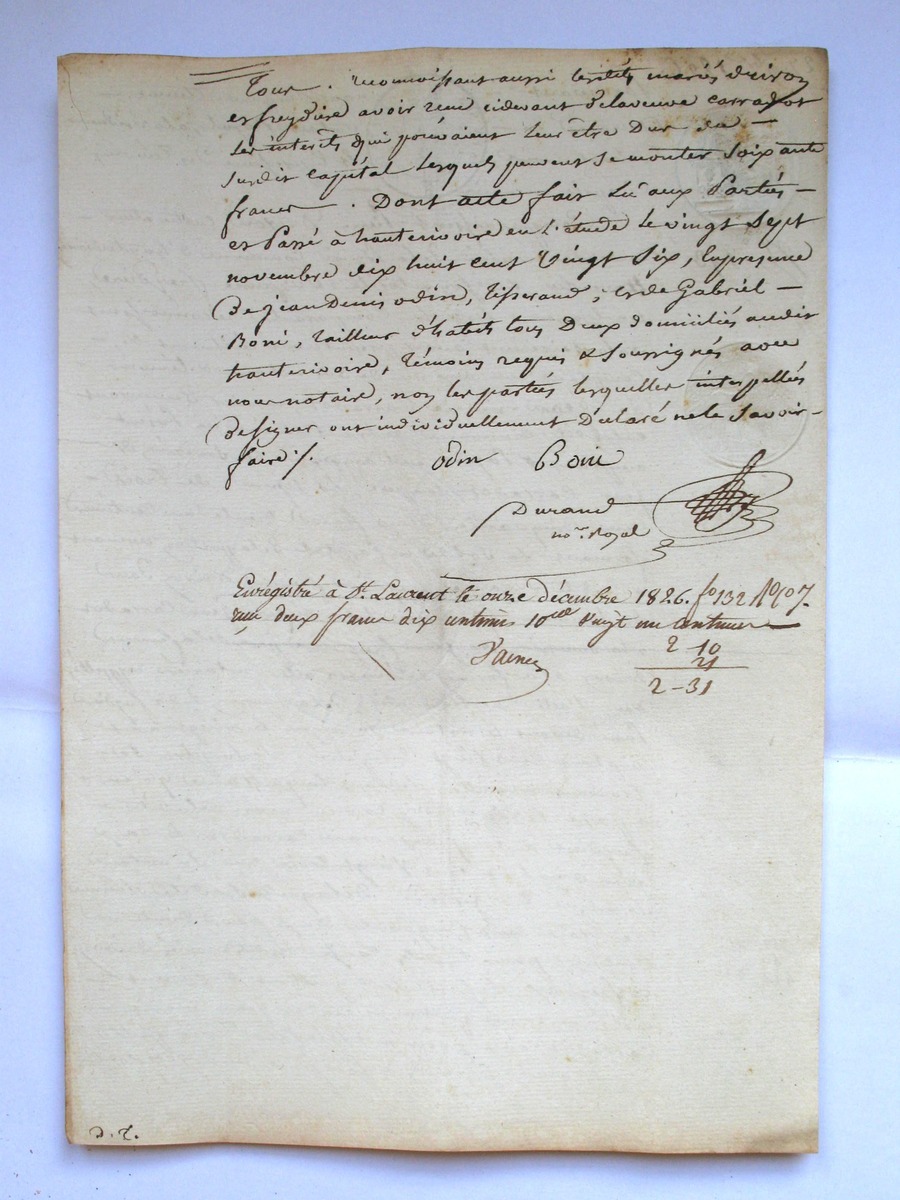 Tour. reconnoissant aussi lesdits mariés
et freydiere avoir reçu cidevant de la veuve
les interêts qui pouvaient leur être dus du —
susdit capital lesquels peuvent se monter soixante
francs. Dont acte fait Lu aux Parties —
et Passé à hauterivoire en l'étude le vingt sept
novembre dix huit cent vingt six, En presence
de jean Denis odin, Tisserand, et de Gabriel —
Boni, tailleur d'habits tous Deux domiciliés audit
hauterivoire, témoins requis & soussignés avec
nous notaire, non les parties lesquelles interpellées
de signer ont individuellement déclaré ne le savoir —
faire ./.
odin Boni
Durand
no.re Royal
Enrégistré à St. Laurent le onze décembre 1826. fo 132
reçu deux francs dix centimes 10eme vingt un centimes —
2 - 10
21
2 - 31
D. T.